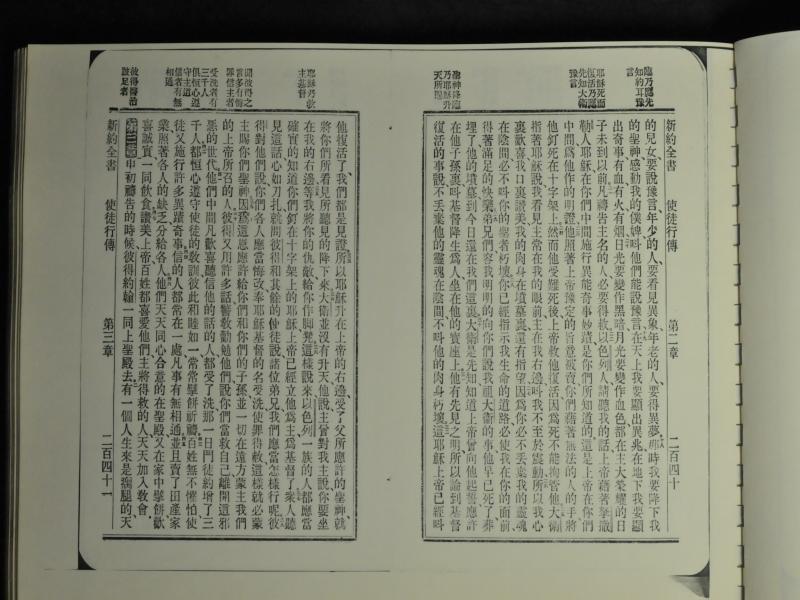 臨乃驗先
知約耳豫
言
耶穌死而
復活乃驗
先知大衛
豫言
聖神降臨
乃耶穌升
天所賜
新約全書 使徒行傳 第二章 二百四十
的兒女要說豫言年少的人要看見異象年老的人要得異夢那時我要降下我
的聖神感動我的僕婢呌他們能說豫言在天上我要顯出異兆在地下我要顯
出奇事有血有火有烟日光要變作黑暗月光要變作血色都在主大榮耀的日
子未到以前凡禱告主名的人必要得救以色列人請聽我的話上帝藉著拿撒
勒人耶穌在你們中間施行異能奇事妙蹟是你們所知道的這是上帝在你們
中間爲他作的明證他照著上帝豫定的旨意被賣你們藉著無法的人的手將
他釘死在十字架上然而他受難死後上帝敎他復活因爲死不能拘管他大衛
指著耶穌說我看見主常在我的眼前主在我右邊呌我不至於震動所以我心
裏歡喜我口裏讚美我的肉身在墳墓裏還有指望因爲你必不丟棄我的靈魂
在陰間必不呌你的聖者朽壞你已經指示我生命的道路必使我在你的面前
得著滿足的快樂弟兄們容我明明的向你們說我祖大衛的事他早已死了葬
埋了他的墳墓到今日還在我們這裏大衛是先知知道上帝曾向他起誓應許
在他子孫裏呌基督降生爲人坐在他的寶座上他有先見之明所以論到基督
復活的事說不丟棄他的靈魂在陰間不呌他的肉身朽壞這耶穌上帝已經呌
耶穌乃救
主基督
聞彼得之
言多有悔
罪信主者
受洗者有
三千人
俱恒心遵
守主道
信者有無
相通
彼得醫治
跛足者
他復活了我們都是見證所以耶穌升在上帝的右邊受了父所應許的聖神就
將你們所看見所聽見的降下來大衛並沒有升天他說主曾對我主說你要坐
在我的右邊等我將你的仇敵給你作脚凳這樣說來以色列一族的人都應當
確實的知道你們釘在十字架上的耶穌上帝已經立他爲主爲基督了衆人聽
見這話心如刀扎就問彼得和其餘的使徒說諸位弟兄我們應當怎樣行呢彼
得對他們說你們各人應當悔改奉耶穌基督的名受洗使罪得赦這樣就必蒙
主賜你們聖神因爲這恩應許給你們和你們的子孫並一切在遠方蒙主我們
的上帝所召的人彼得又用許多話警敎勸勉他們說你們當救自己離開這邪
惡的世代他們中間凡歡喜聽信他的話的人都受了洗那一日門徒約增了三
千人都恒心遵守使徒的敎訓彼此和睦如一常常擘餅祈禱百姓無不懼怕使
徒又施行許多異蹟奇事信的人都常在一處凡事有無相通並且賣了田產家
業照著各人的缺乏分給各人他們天天同心合意的在聖殿又在家中擘餅歡
喜誠實一同飲食讚美上帝百姓都喜愛他們主將得救的人天天加入敎會
第三章申初禱告的時候彼得約翰一同上聖殿去有一個人生來是瘸腿的天
新約全書 使徒行傳 第三章 二百四十一